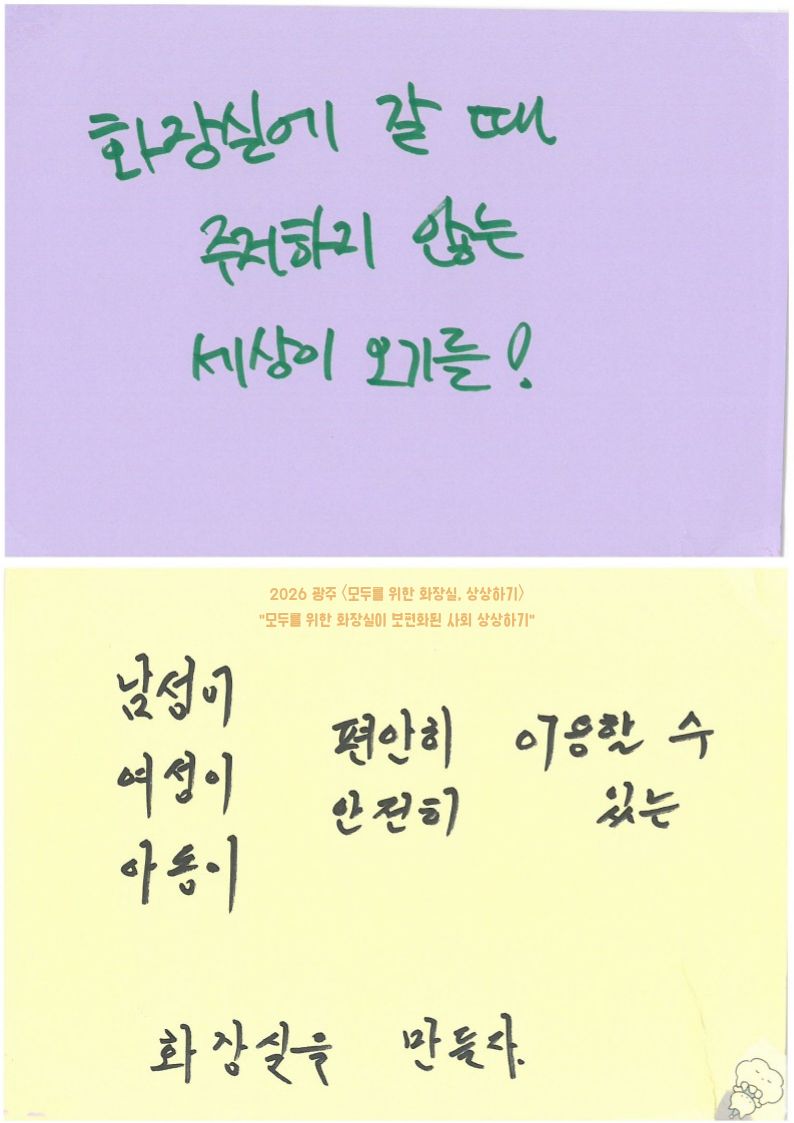 화장실에 갈 때
주저하지 않는
세상이 오기를!
2026 광주 <모두를 위한 화장실, 상상하기>
"모두를 위한 화장실이 보편화된 사회 상상하기"
남성이
여성이
아동이
편안히 이용할 수
안전히 있는
화장실을 만들자.